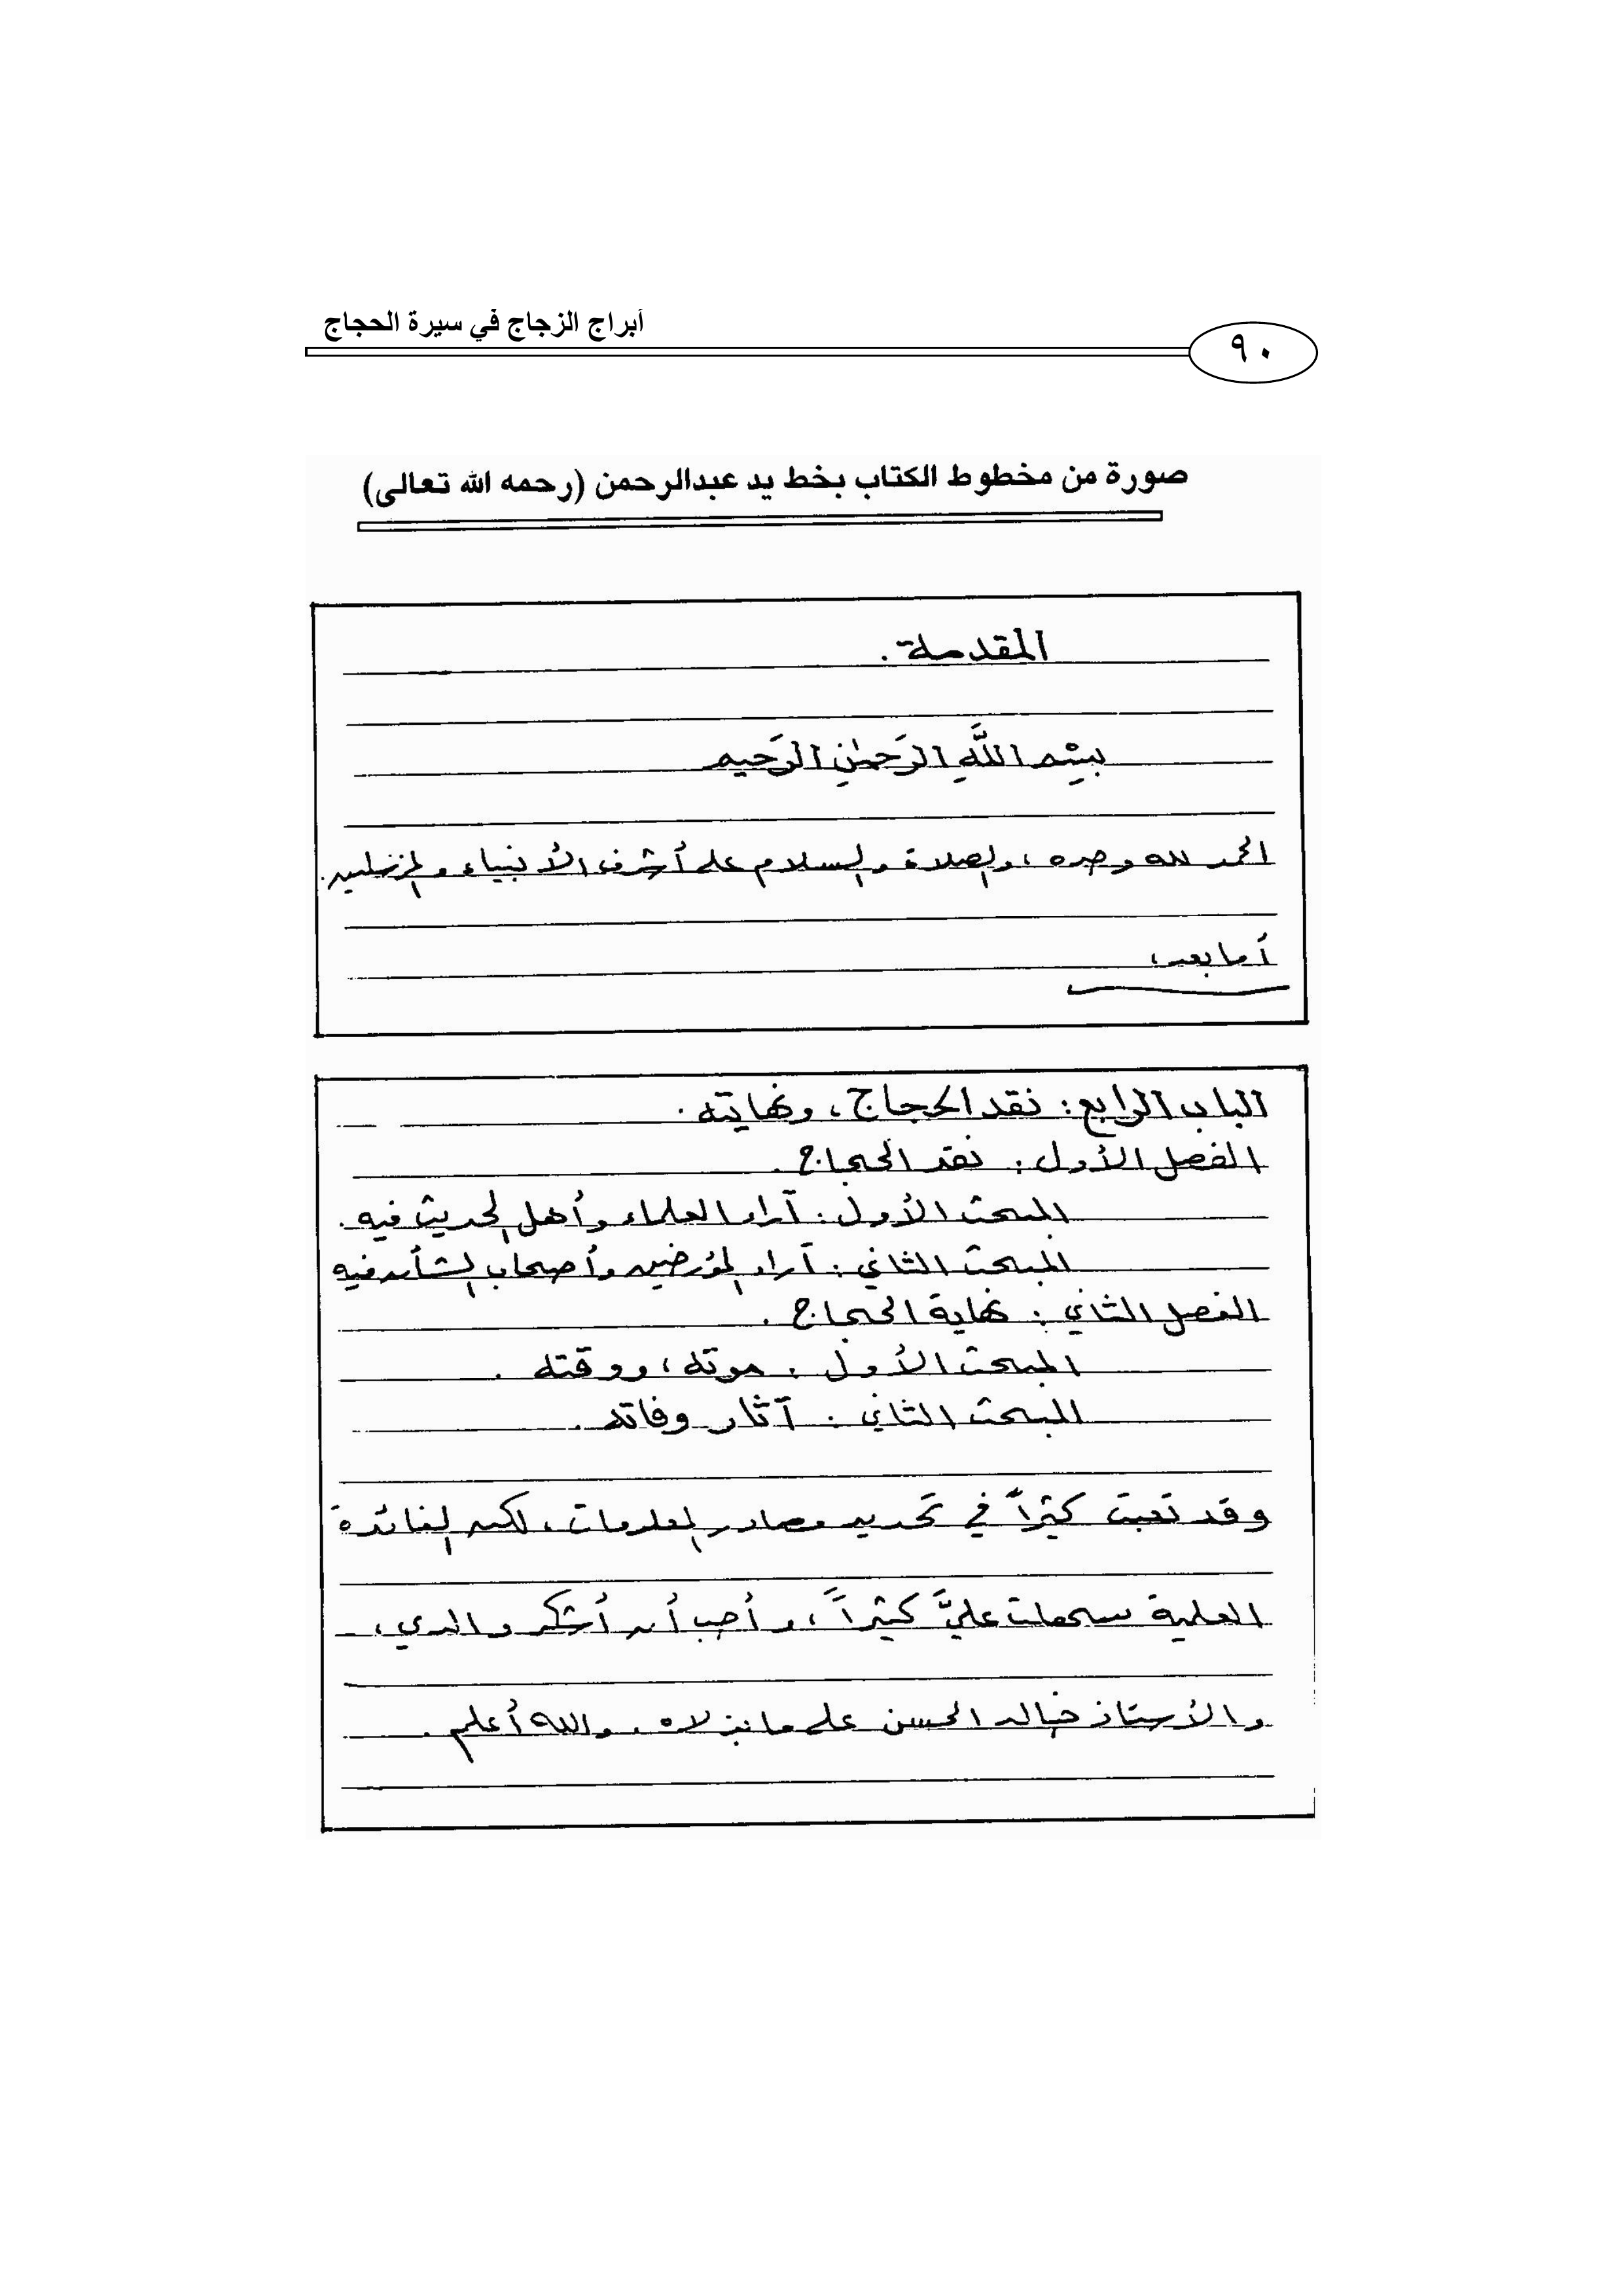 أبراج الزجاج في سيرة الحجاج
٩٠
صورة من مخطوط الكتاب بخط يد عبدالرحمن (رحمه الله تعالى)
المقدمة.
بِسْمِ اللَّهِ الرَحمٰنِ الرَحيم
الحمد لله وحده، والصلاة والسلام على أشرف الأنبياء والمرسلين.
أما بعد،
الباب الرابع: نقد الحجاج، ونهايته.
الفصل الأول: نقد الحجاج.
المبحث الأول: آراء العلماء وأهل الحديث فيه.
المبحث الثاني: آراء المؤرخين وأصحاب الشأن فيه
الفصل الثاني: نهاية الحجاج.
المبحث الأول: موته، ووقته.
المبحث الثاني: آثار وفاته.
وقد تعبت كثيراً في تحديد مصادر المعلومات، لكن الفائدة
العلمية سهلت عليَّ كثيراً، وأحب أن أشكر والدي،
والأستاذ خالد الحسن على ما بذلاه، والله أعلم.